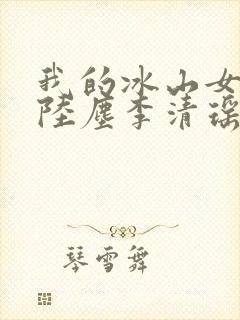 我的冰山女
陸塵李清瑶
琴雪舞